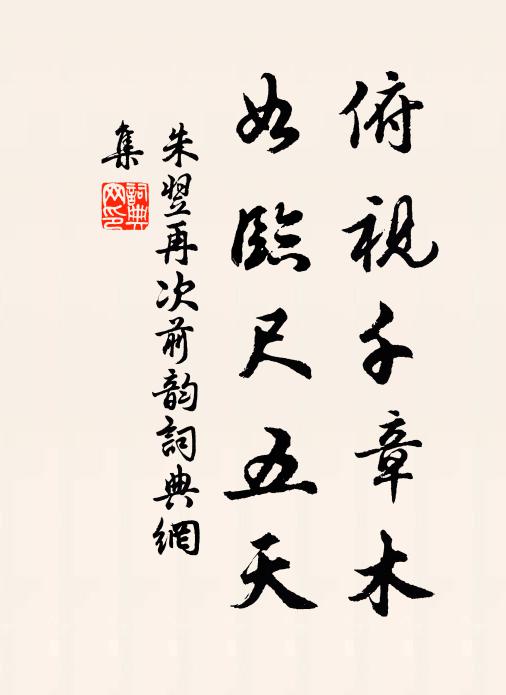 俯視千章木
如臨尺五天
朱翌再次前韵詞典網
集
詞典網印